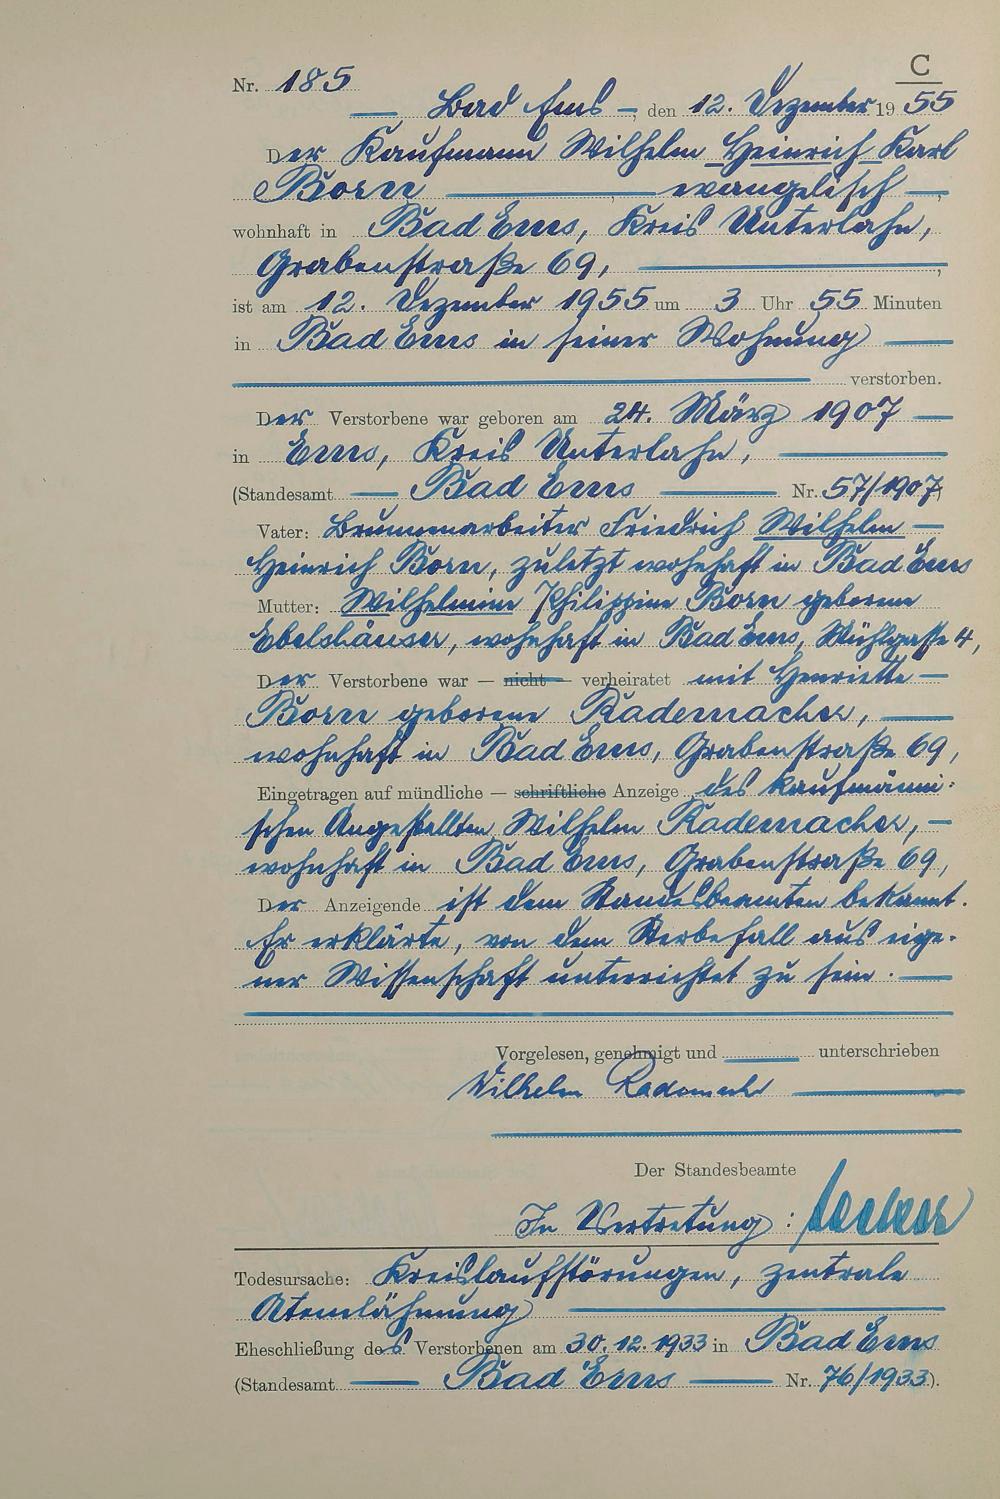 C
Nr. 185
— Bad Ems —, den 12. Dezember 1955
Der Kaufmann Wilhelm Heinrich Karl
Born ———, evangelisch —,
wohnhaft in Bad Ems, Kreis Unterlahn,
Grabenstraße 69, ———,
ist am 12. Dezember 1955 um 3 Uhr 55 Minuten
in Bad Ems in seiner Wohnung ———
——— verstorben.
Der Verstorbene war geboren am 24. März 1907 —
in Ems, Kreis Unterlahn, ———
(Standesamt — Bad Ems ——— Nr. 57/1907)
Vater: Brunnenarbeiter Friedrich Wilhelm —
Heinrich Born, zuletzt wohnhaft in Bad Ems
Mutter: Wilhelmine Philippine Born geborene
Ebelshäuser, wohnhaft in Bad Ems, Mühlgasse 4,
Der Verstorbene war — nicht — verheiratet mit Henriette —
Born geborene Rademacher, ———
wohnhaft in Bad Ems, Grabenstraße 69,
Eingetragen auf mündliche — schriftliche Anzeige des kaufmänni=
schen Angestellten Wilhelm Rademacher, —
wohnhaft in Bad Ems, Grabenstraße 69,
Der Anzeigende ist dem Standesbeamten bekannt.
Er erklärte, von dem Sterbefall aus eige-
ner Wissenschaft unterrichtet zu sein. ———
Vorgelesen, genehmigt und ——— unterschrieben
Wilhelm Rademacher ———
Der Standesbeamte
In Vertretung:
Todesursache: Kreislaufstörungen, zentrale
Atemlähmung ———
Eheschließung des Verstorbenen am 30.12.1933 in Bad Ems
(Standesamt — Bad Ems ——— Nr. 76/1933).